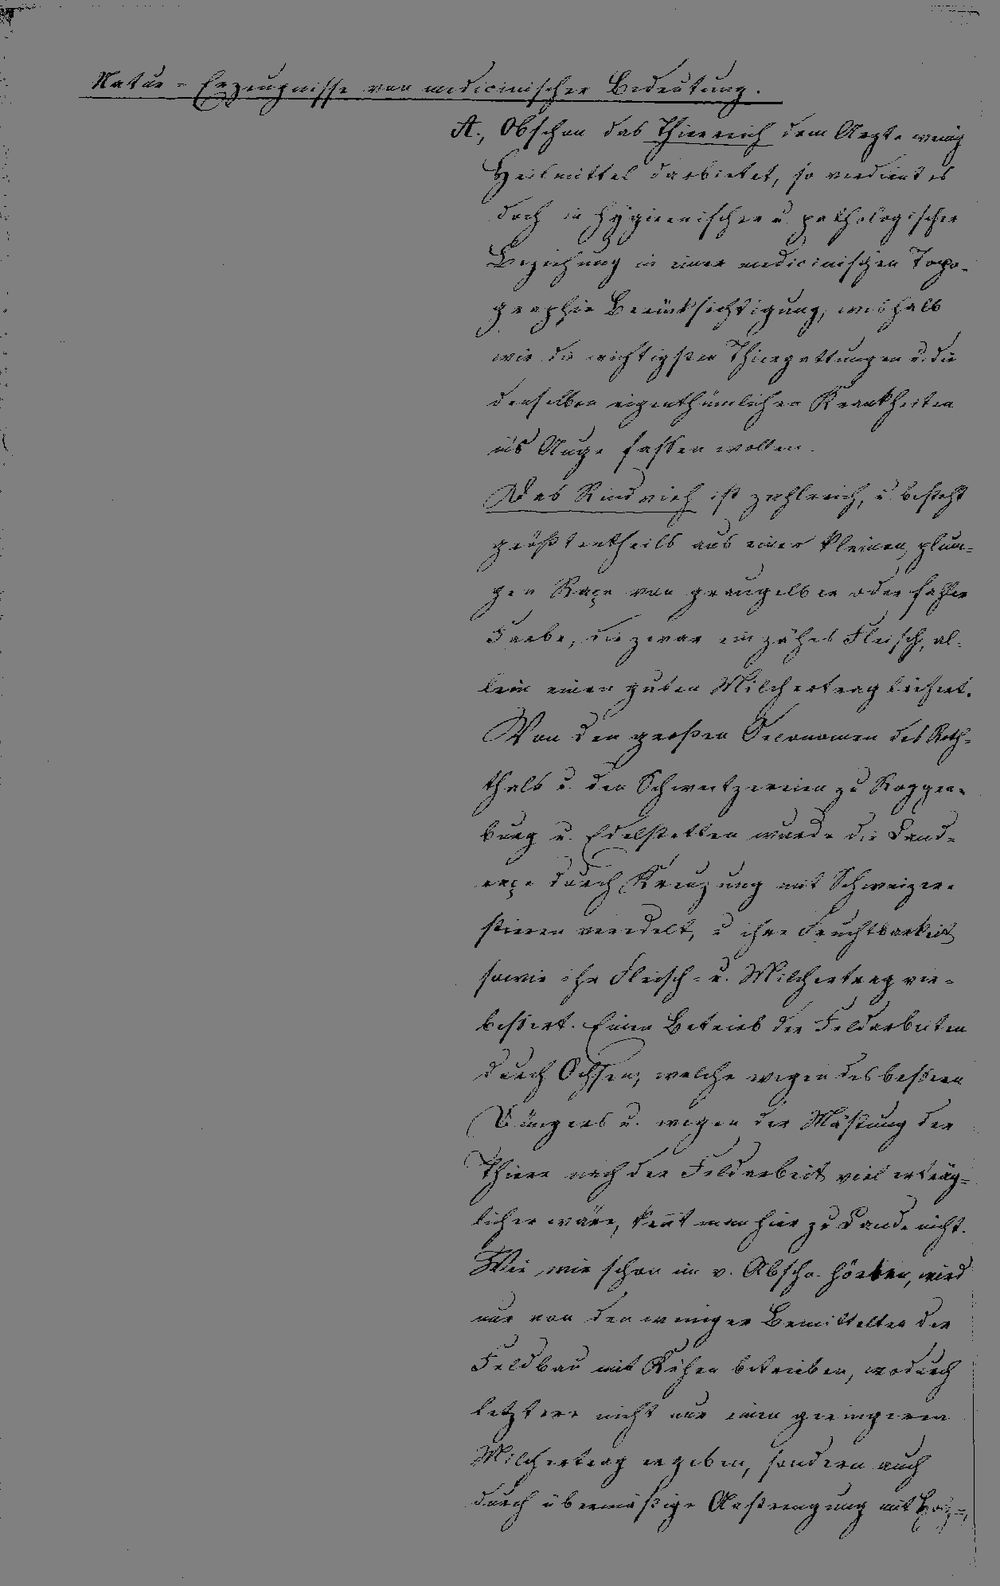 Natur-Erzeugnisse von medicinischer Bedeutung.
A., Obschon das Thierreich dem Arzte wenig
Heilmittel darbietet, so verdient es
doch in hygienischer u. pathologischer
Beziehung in einer medicinischen Topo-
graphie Berücksichtigung, weshalb
wir die wichtigsten Thiergattungen u. die
denselben eigenthümlichen Krankheiten
in's Auge fassen wollen.
Das Rindvieh ist zahlreich, u. besteht
größtentheils aus einer kleinen, plum-
pen Raçe von graugelber oder fahler
Farbe, die zwar ein zähes Fleisch, al-
lein einen guten Milchertrag liefert.
Von den großen Oeconomen des Roth-
thals u. den Schweitzereien zu Roggen-
burg u. Edelstetten wurde die Land-
raçe durch Kreuzung mit Schweizer-
stieren veredelt, u. ihre Fruchtbarkeit
sowie ihr Fleisch- u. Milchertrag ver-
bessert. Einen Betrieb der Feldarbeiten
durch Ochsen, welche wegen des bessern
Düngers u. wegen der Mästung der
Thiere nach der Feldarbeit viel erträg-
licher wäre, kennt man hier zu Lande nicht.
Wie wir schon im v. Absch. hörten, wird
nur von den weniger Bemittelten der
Feldbau mit Kühen betrieben, wodurch
letztere nicht nur einen geringeren
Milchertrag ergeben, sondern auch
durch übermäßige Anstrengung mit